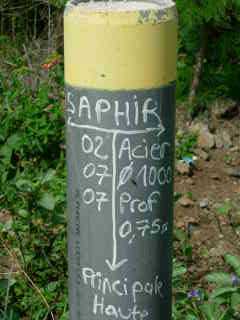 SAPHIR
02 Acier
07 Ø 1000
07 Prof
0,75m
Principale
Haute